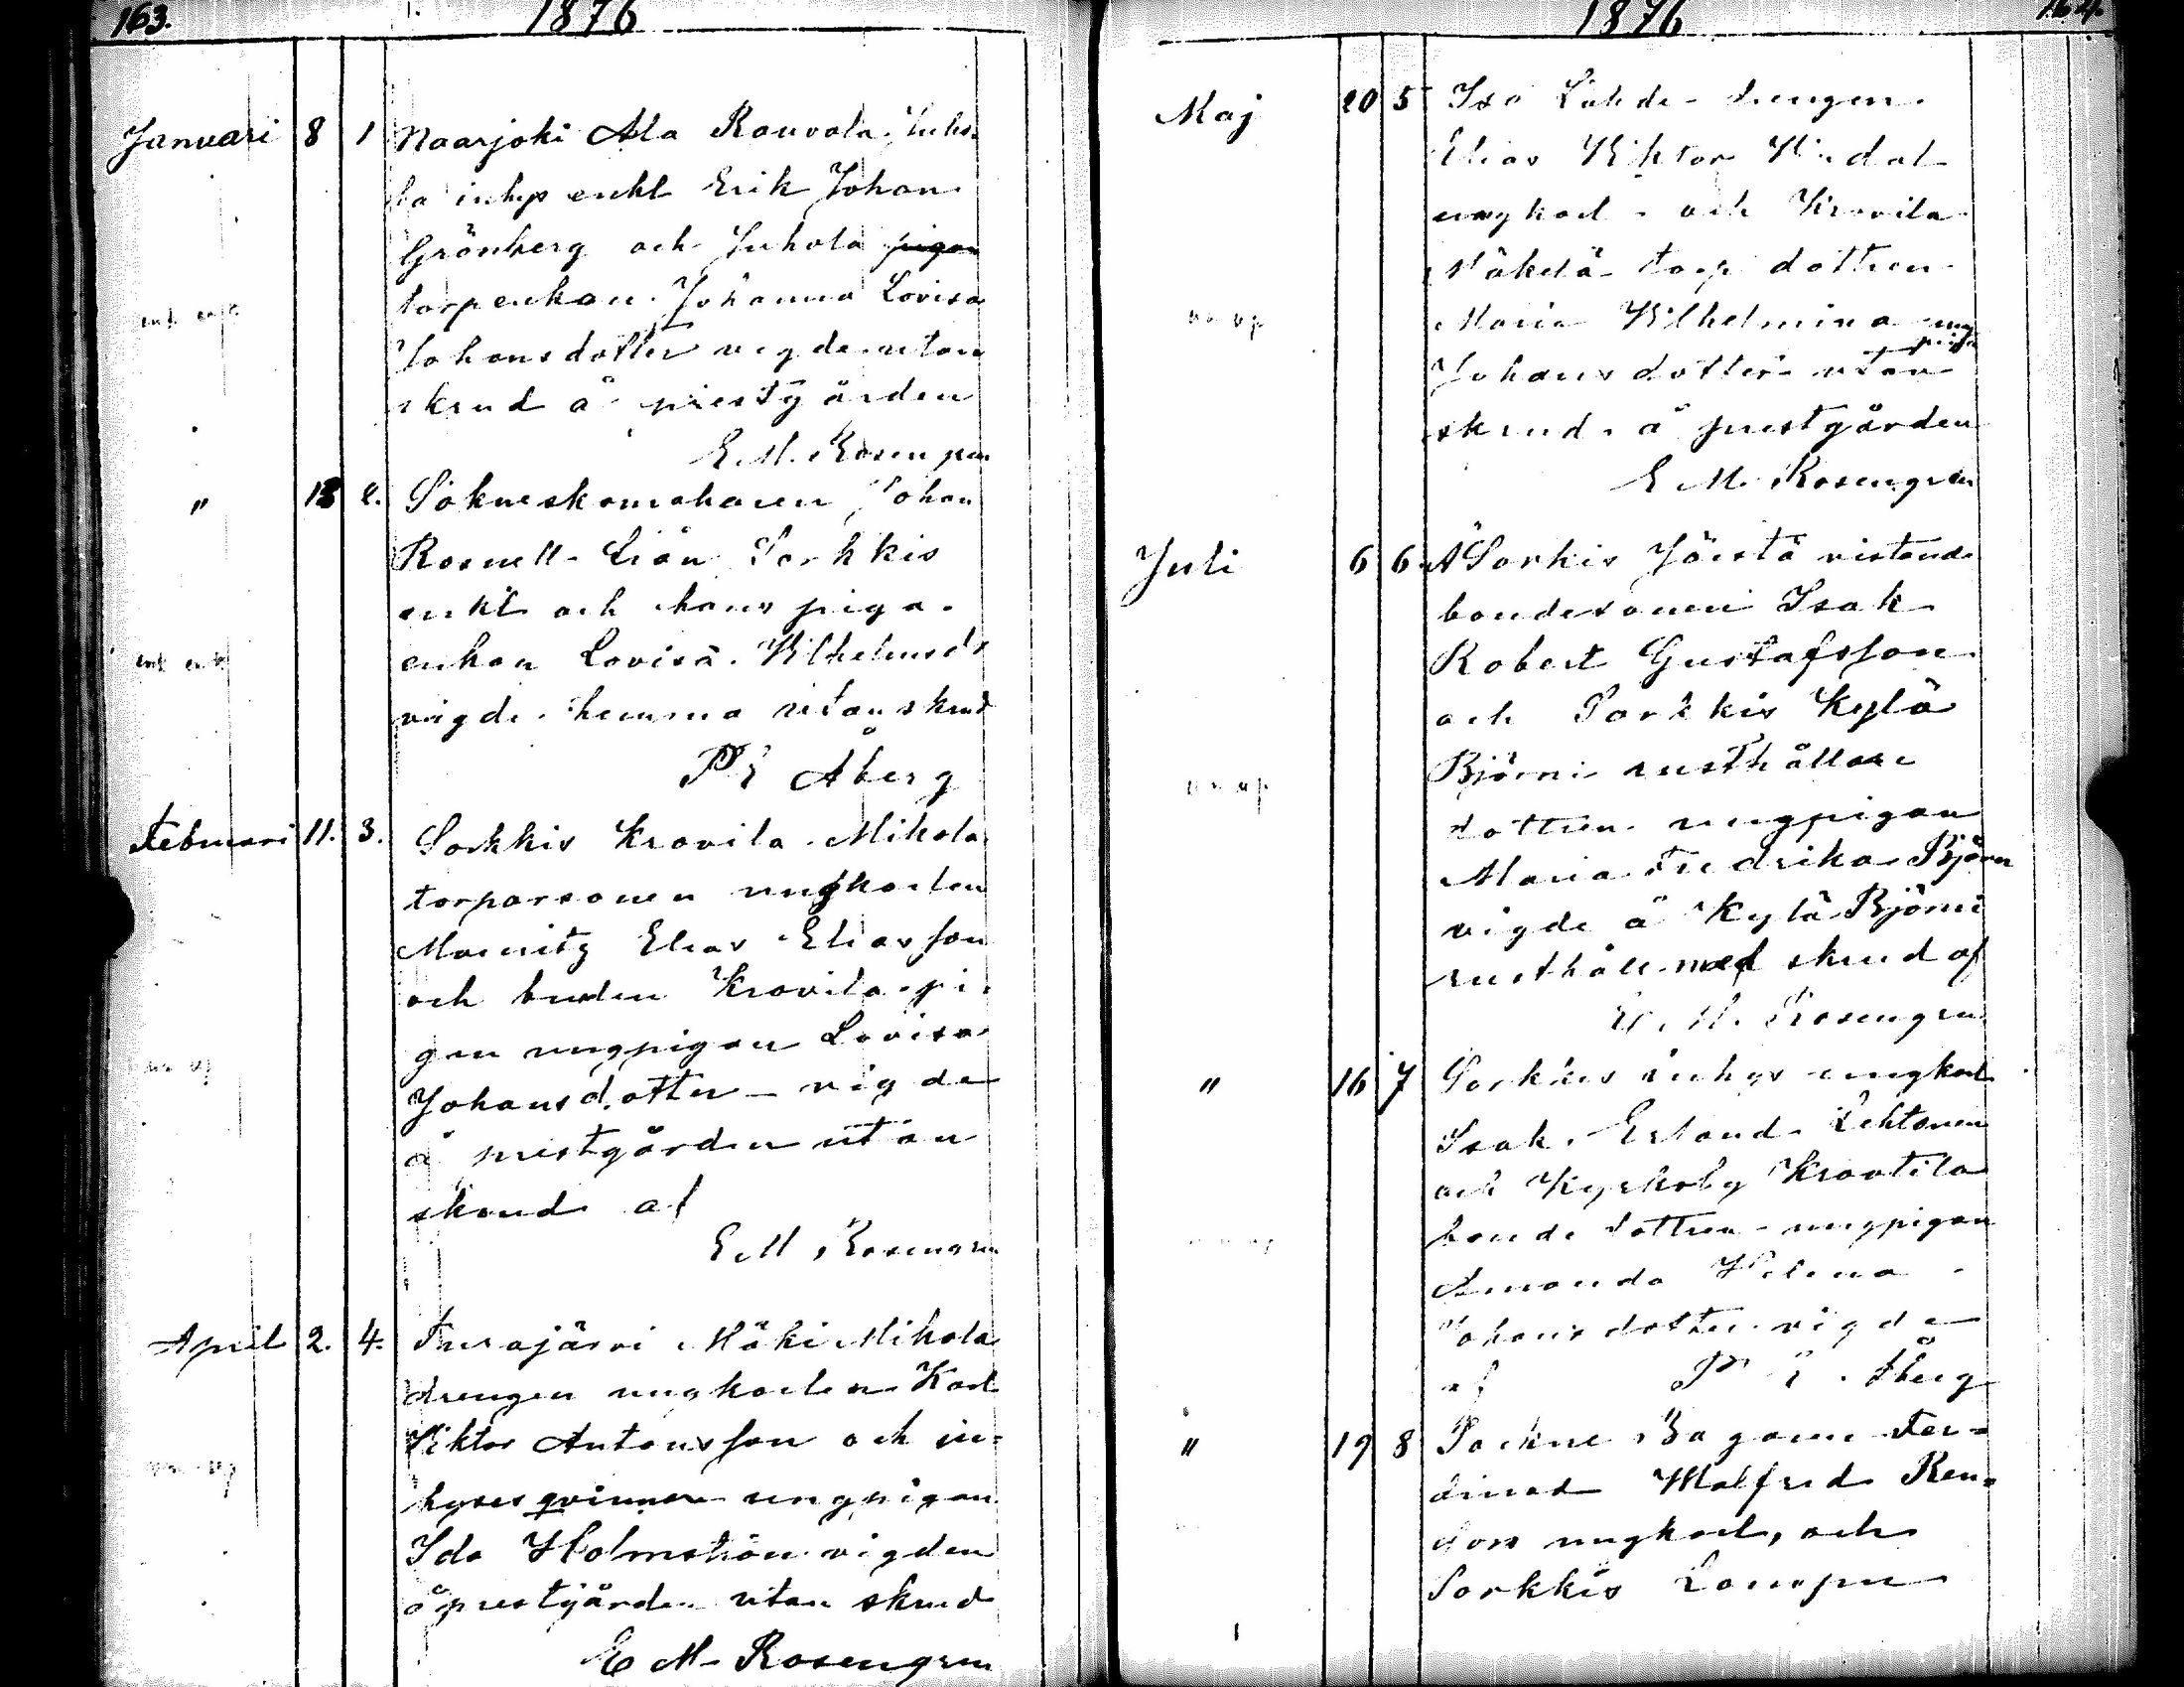 163.
1876
Januari 8 1 Naarjoki Ala Rauvola Juho-
la inhys enkl Erik Johan
Grönberg och Juhola pigan
torpenkan Johanna Lovisa
Johansdotter vigde utan
skrud å prestgården
E. M. Rosengren
" 18 2. Sokneskomakaren Johan
Rosnell Sorkkis
enkl och hans piga
enkan Lovisa Vilhelmsdr
vigde hemma utan skrud
P E Åberg
Februari 11. 3. Sorkkis Kravila Mikola
torparsonen ungkarlen
Mauritz Elias Eliasson
och Kravila pi-
gan ungpigan Lovisa
Johansdotter vigde
å prestgården utan
skrud af
E. M. Rosengren
April 2. 4. Turajärvi Mäki Mikola
drengen ungkarlen Karl
Viktor Antonsson och in-
hyses qvinnan ungpigan
Ida Holmström vigden
å prestgården utan skrud
E M Rosengren
1876
164.
Maj 20 5 Iso Lahde drengen
Elias Viktor Vidal
ungkarl och Kravila
Mäkelä torp dottren
Maria Vilhelmina ung
piga
Johansdotter utan
skrud å prestgården
E M. Rosengren
Juli 6 6 Å Sorkis Jöistä vistande
bondesonen Isak
Robert Gustafsson
och Sorkkis Kylä
Björni rusthållare
dottren ungpigan
Maria Fredrika Björn
vigde å Kylä Björni
rusthåll med skrud af
E. M. Rosengren
" 16 7 Sorkkis inhys ungkarl
Isak Erland Lehtonen
och Kyrkoby Kraatila
bonde dottren ungpigan
Amanda Helena
Johansdotter vigde
af P E. Åberg
" 19 8 Sockne Bagaren Fer-
dinad Walfrid Ren-
fors ungkarl, och
Sorkkis